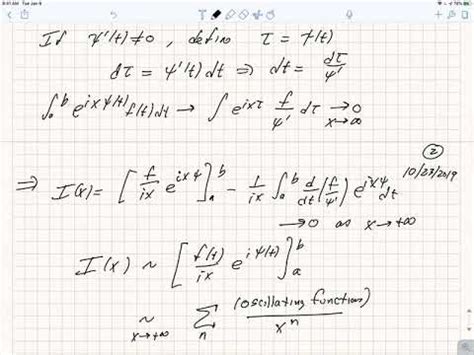 9:41 AM Tue Jan 9
If ψ'(t)≠0, define τ = ψ(t)
dτ = ψ'(t)dt ⇒ dt = dτ/ψ'
∫_a^b e^{ixψ(t)} f(t)dt → ∫ e^{ixτ} f/ψ' dτ → 0 x→∞
② 10/23/2019
⇒ I(x) = [f/ix e^{ixψ}]_a^b - 1/ix ∫_a^b d/dt (f/ψ') e^{ixψ} dt
→ 0 as x→+∞
I(x) ~ [f(t)/ix e^{iψ(t)}]_a^b
~ x→+∞ Σ_n (oscillating function)/x^n